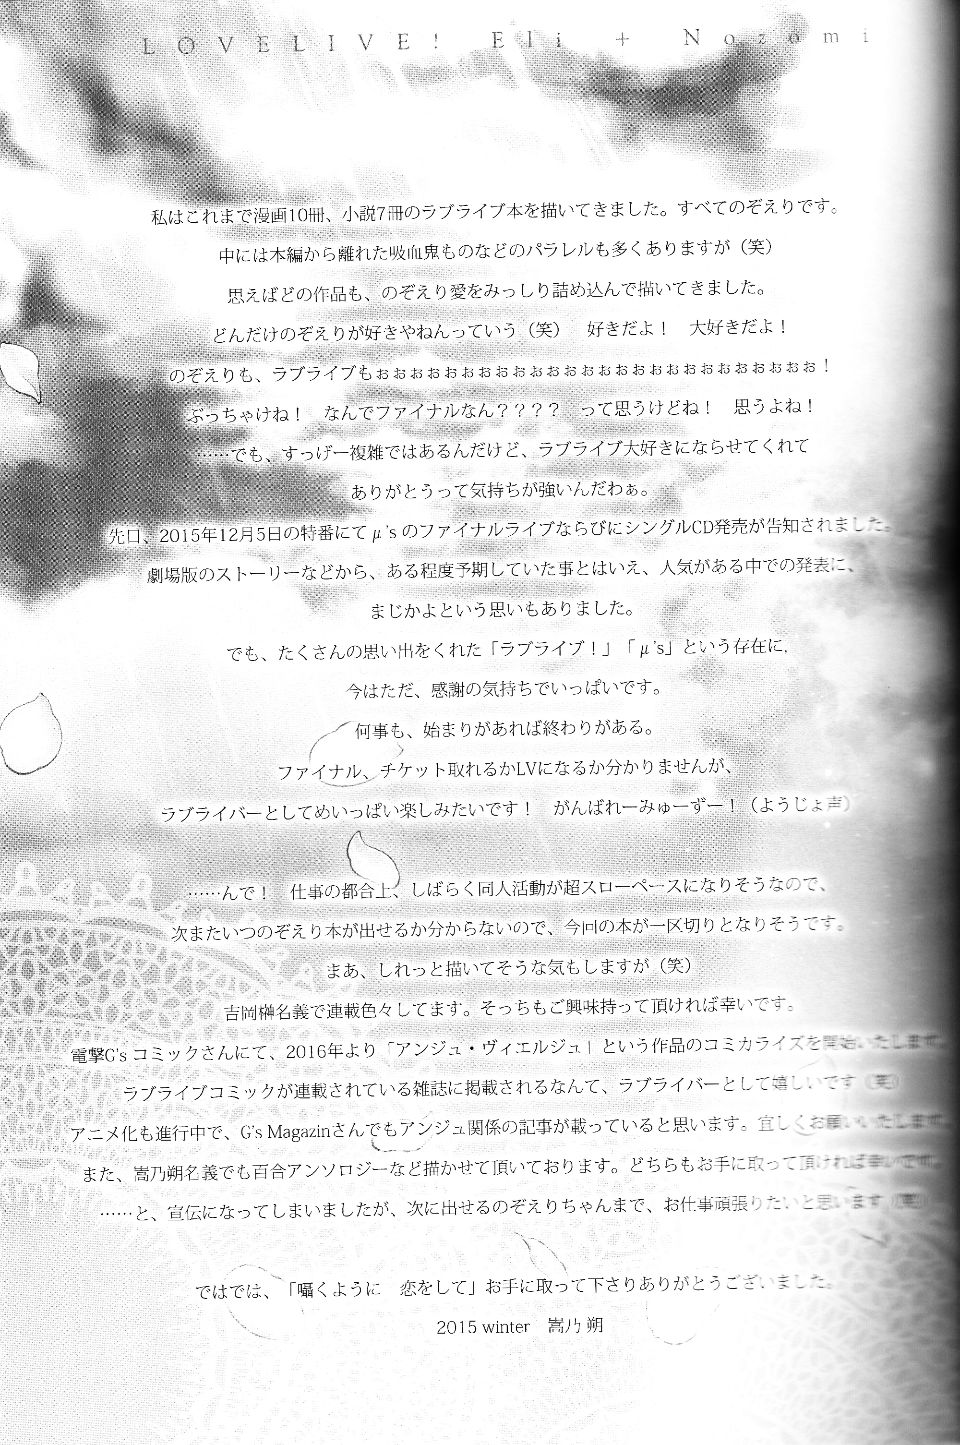 LOVELIVE! Eli + Nozomi
私はこれまで漫画10冊、小説7冊のラブライブ本を描いてきました。すべてのぞえりです。
中には本編から離れた吸血鬼ものなどのパラレルも多くありますが（笑）
思えばどの作品も、のぞえり愛をみっしり詰め込んで描いてきました。
どんだけのぞえりが好きやねんっていう（笑）　好きだよ！　大好きだよ！
のぞえりも、ラブライブもぉぉぉぉぉぉぉぉぉぉぉぉぉぉぉぉぉぉぉぉぉぉぉぉぉぉ！
ぶっちゃけね！　なんでファイナルなん？？？？　って思うけどね！　思うよね！
……でも、すっげー複雑ではあるんだけど、ラブライブ大好きにならせてくれて
ありがとうって気持ちが強いんだわぁ。
先日、2015年12月5日の特番にてμ'sのファイナルライブならびにシングルCD発売が告知されました。
劇場版のストーリーなどから、ある程度予期していた事とはいえ、人気がある中での発表に、
まじかよという思いもありました。
でも、たくさんの思い出をくれた「ラブライブ！」「μ's」という存在に、
今はただ、感謝の気持ちでいっぱいです。
何事も、始まりがあれば終わりがある。
ファイナル、チケット取れるかLVになるか分かりませんが、
ラブライバーとしてめいっぱい楽しみたいです！　がんばれーみゅーずー！（ようじょ声）
……んで！　仕事の都合上、しばらく同人活動が超スローペースになりそうなので、
次またいつのぞえり本が出せるか分からないので、今回の本が一区切りとなりそうです。
まあ、しれっと描いてそうな気もしますが（笑）
吉岡榊名義で連載色々してます。そっちもご興味持って頂ければ幸いです。
電撃G'sコミックさんにて、2016年より「アンジュ・ヴィエルジュ」という作品のコミカライズを開始いたします。
ラブライブコミックが連載されている雑誌に掲載されるなんて、ラブライバーとして嬉しいです（笑）
アニメ化も進行中で、G's Magazinさんでもアンジュ関係の記事が載っていると思います。宜しくお願いいたします。
また、嵩乃朔名義でも百合アンソロジーなど描かせて頂いております。どちらもお手に取って頂ければ幸いです。
……と、宣伝になってしまいましたが、次に出せるのぞえりちゃんまで、お仕事頑張りたいと思います（笑）
ではでは、「囁くように　恋をして」お手に取って下さりありがとうございました。
2015 winter　嵩乃 朔